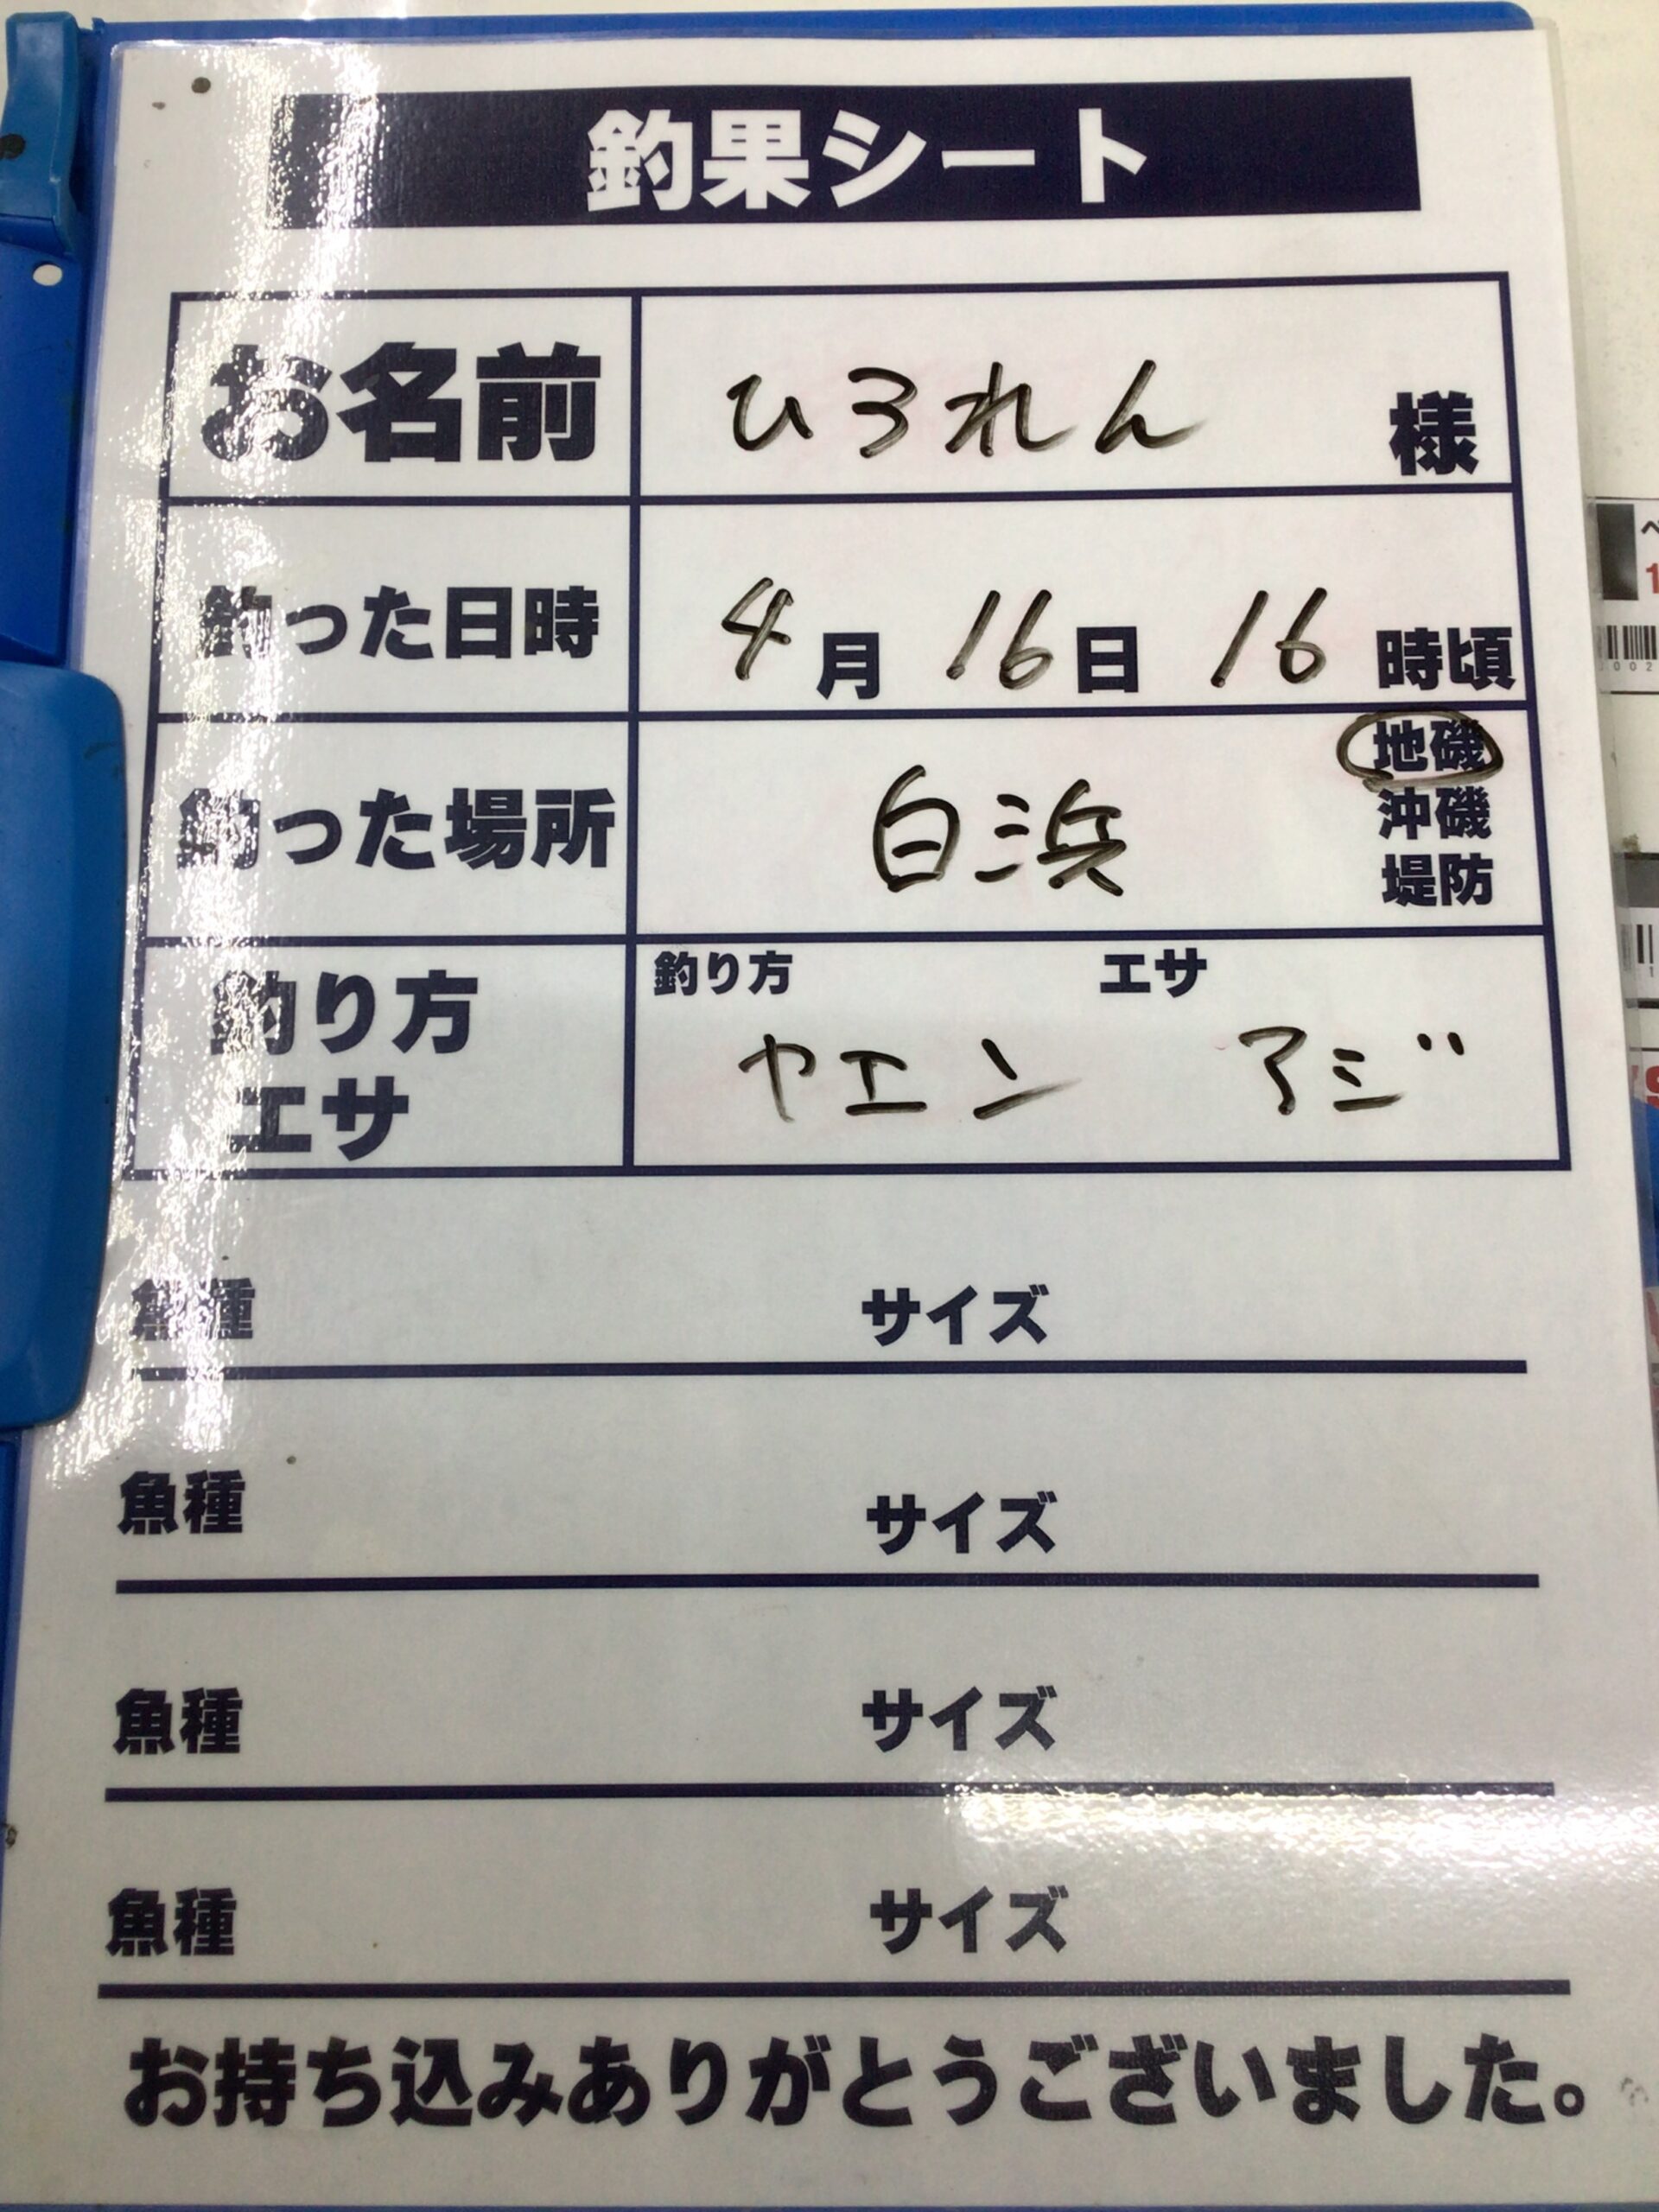 釣果シート
お名前 ひろれん 様
釣った日時 4月 16日 16 時頃
釣った場所 白浜 地磯
沖磯
堤防
釣り方 エサ
釣り方 エサ
ヤエン アジ
魚種 サイズ
魚種 サイズ
魚種 サイズ
魚種 サイズ
お持ち込みありがとうございました。